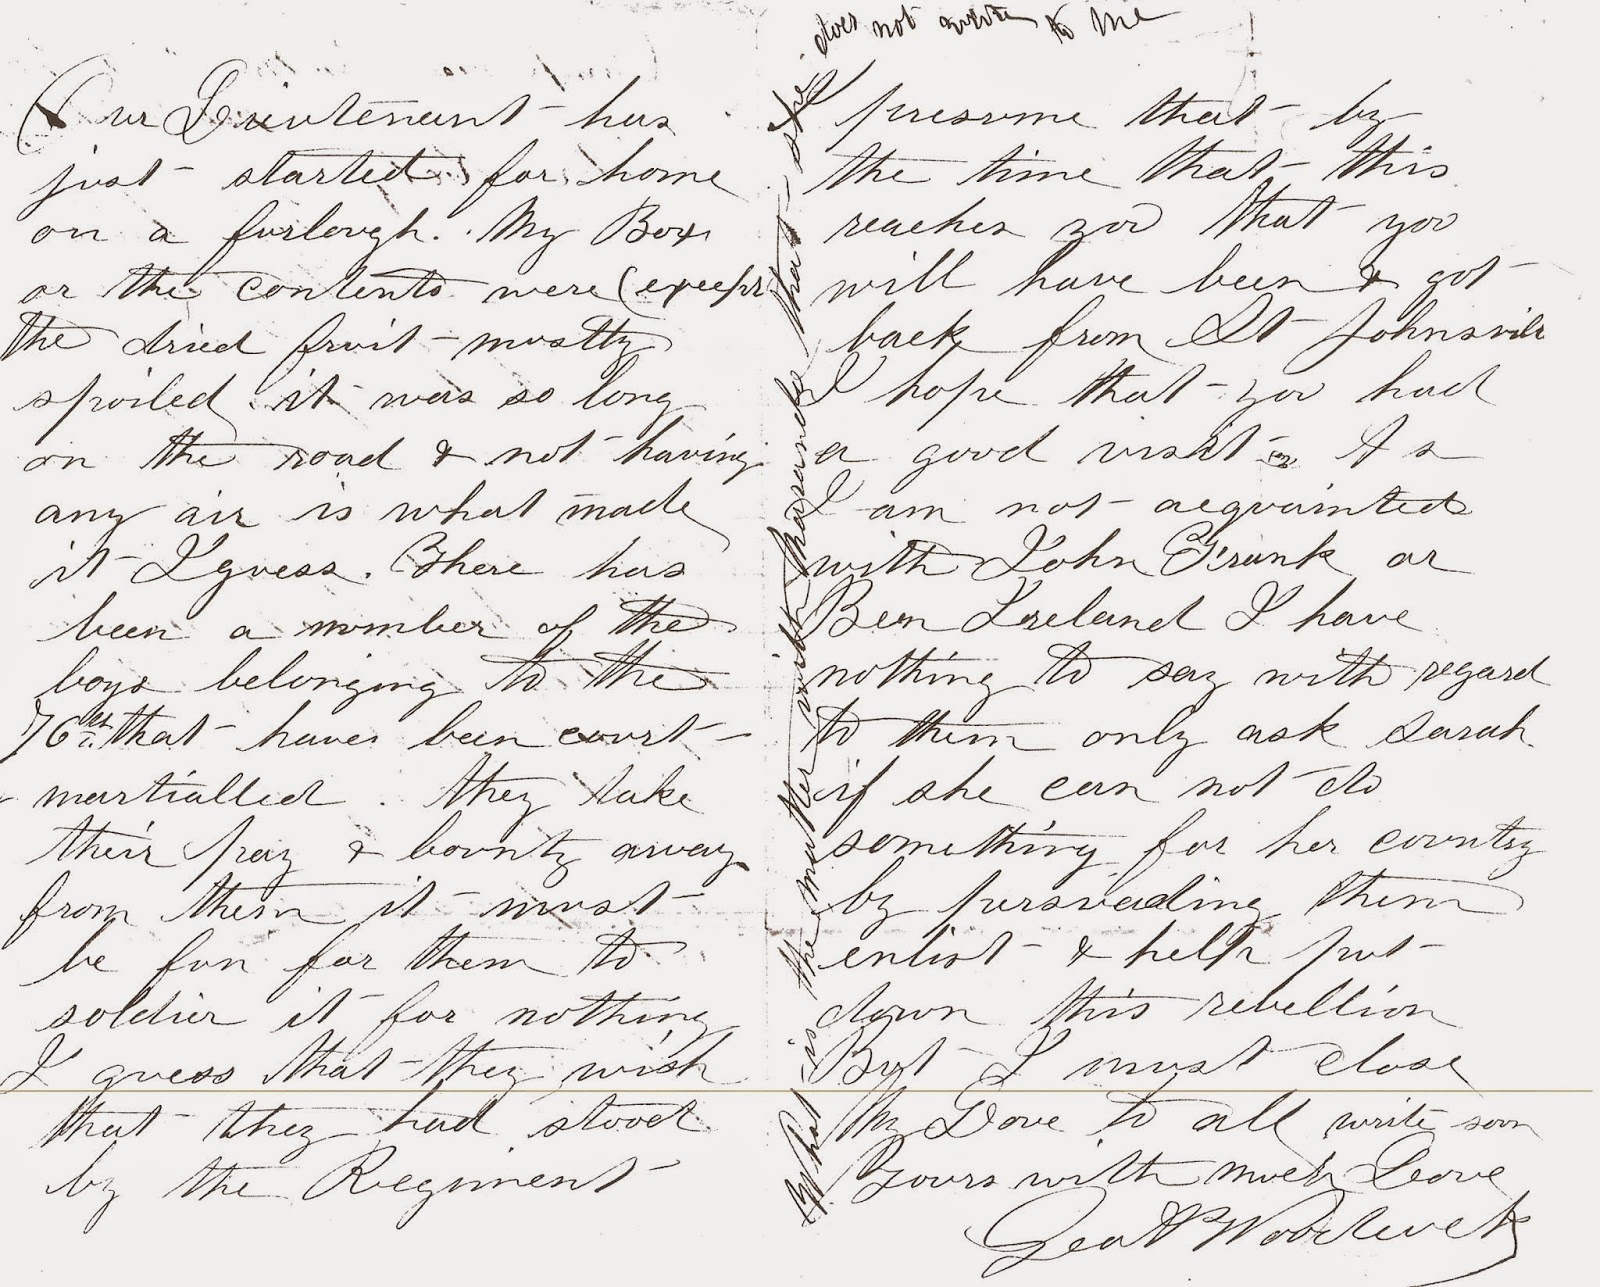 Our Lieutenant has
just started for home
on a furlough. My Box
or the contents were (except
the dried fruit mostly
spoiled. it was so long
on the road & not having
any air is what made
it I guess. There has
been a number of the
boys belonging to the
76th that have been court
martialled. they take
their pay & bounty away
from them it must
be fun for them to
soldier it for nothing
I guess that they wish
that they had stood
by the Regiment
I presume that by
the time that this
reaches you that you
will have been & got
back from St Johnsville
I hope that you had
a good visit. As
I am not acquainted
with John Frank or
Ben Ireland I have
nothing to say with regard
to them only ask Sarah
if she can not do
something for her country
by persuading them
enlist & help put
down this rebellion
But I must close
My Love to all write soon
Yours with much Love
Geo W Woodcock
What is the matter with Maranda that she
does not write to me